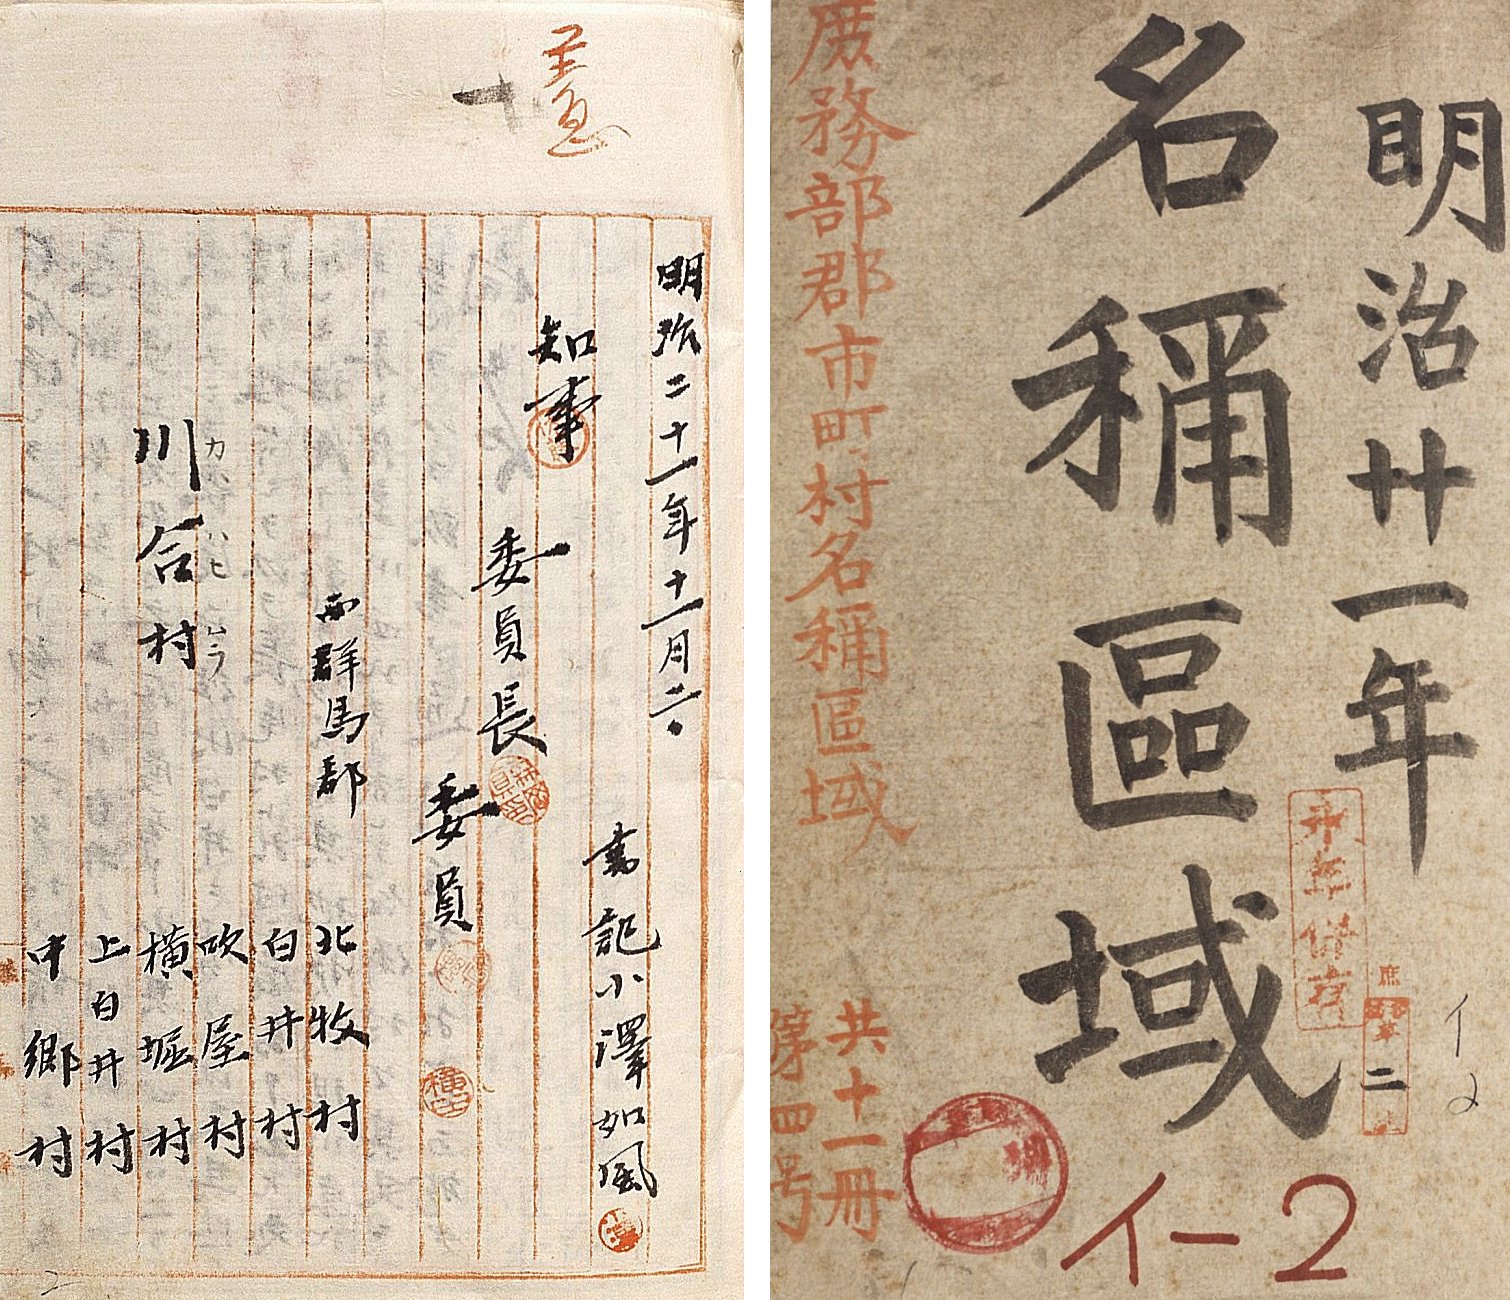 十
至急
明治二十一年十一月二・
書記小澤如風
知事
委員長
委員
西群馬郡
北牧村
白井村
吹屋村
カハヒムラ
川合村
横堀村
上白井村
中郷村
2
明治廿一年
名稱區域
庶務部郡市町村名稱區域
共十一冊
第四号
永年保存
庶
二
イ2
イー2